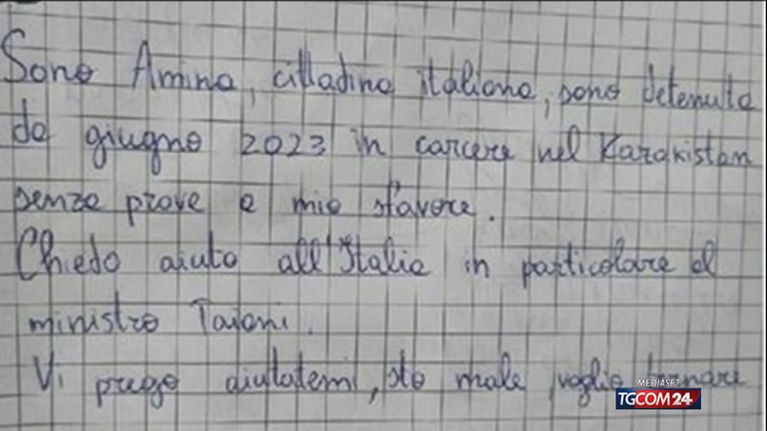 Sono Amina, cittadina italiana, sono detenuta
da giugno 2023 in carcere nel Kazakistan
senza prove a mio sfavore.
Chiedo aiuto all'Italia in particolare al
ministro Taiani.
Vi prego aiutatemi, sto male voglio tornare
MEDIASET
TGCOM24